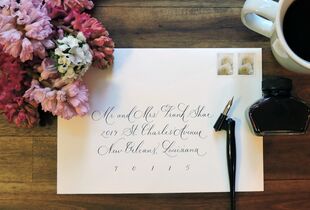 Mr. and Mrs. Frank Shaw
2019 St. Charles Avenue
New Orleans, Louisiana
70115